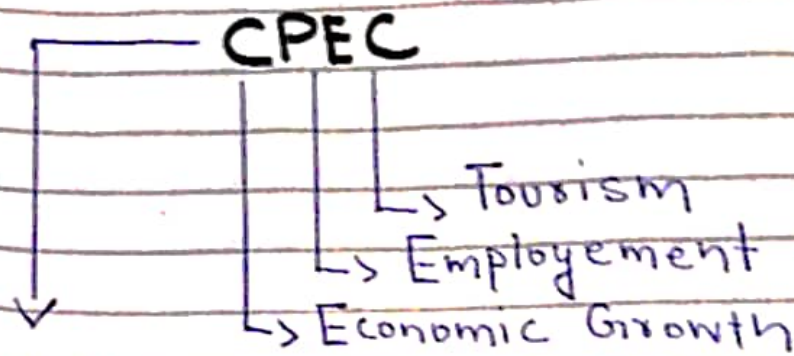 CPEC
Tourism
Employement
Economic Growth